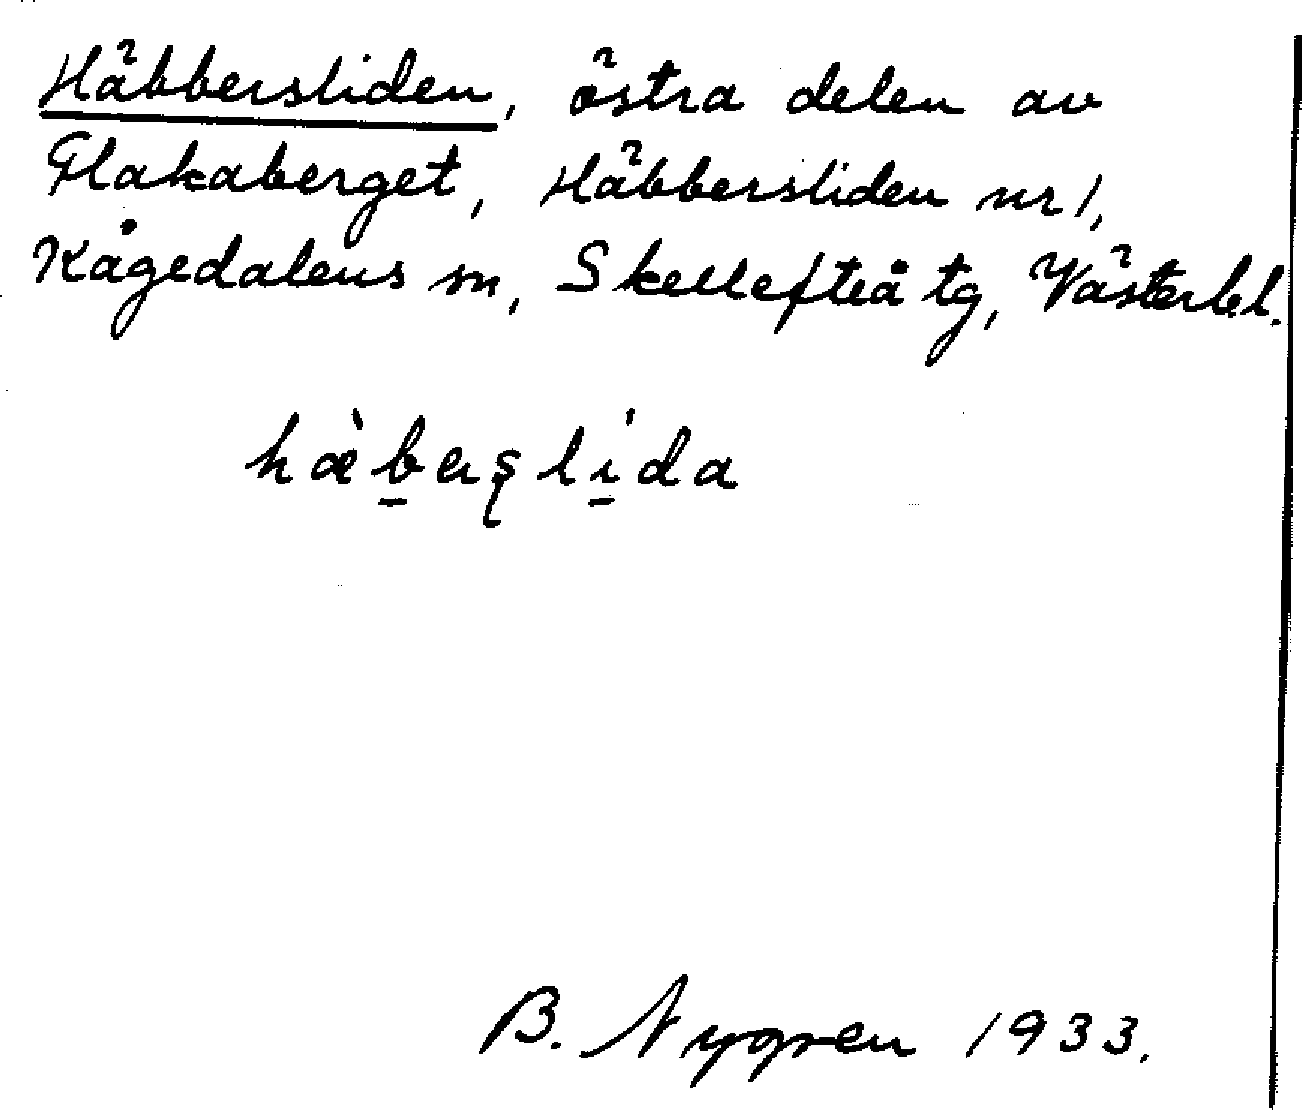 Häbbersliden, östra delen av
Flakaberget, Häbbersliden nr 1,
Kågedalens sn, Skellefteå tg, Västerb. l.
hæ̀b̲erʂlí̲da
B. Nygren 1933.